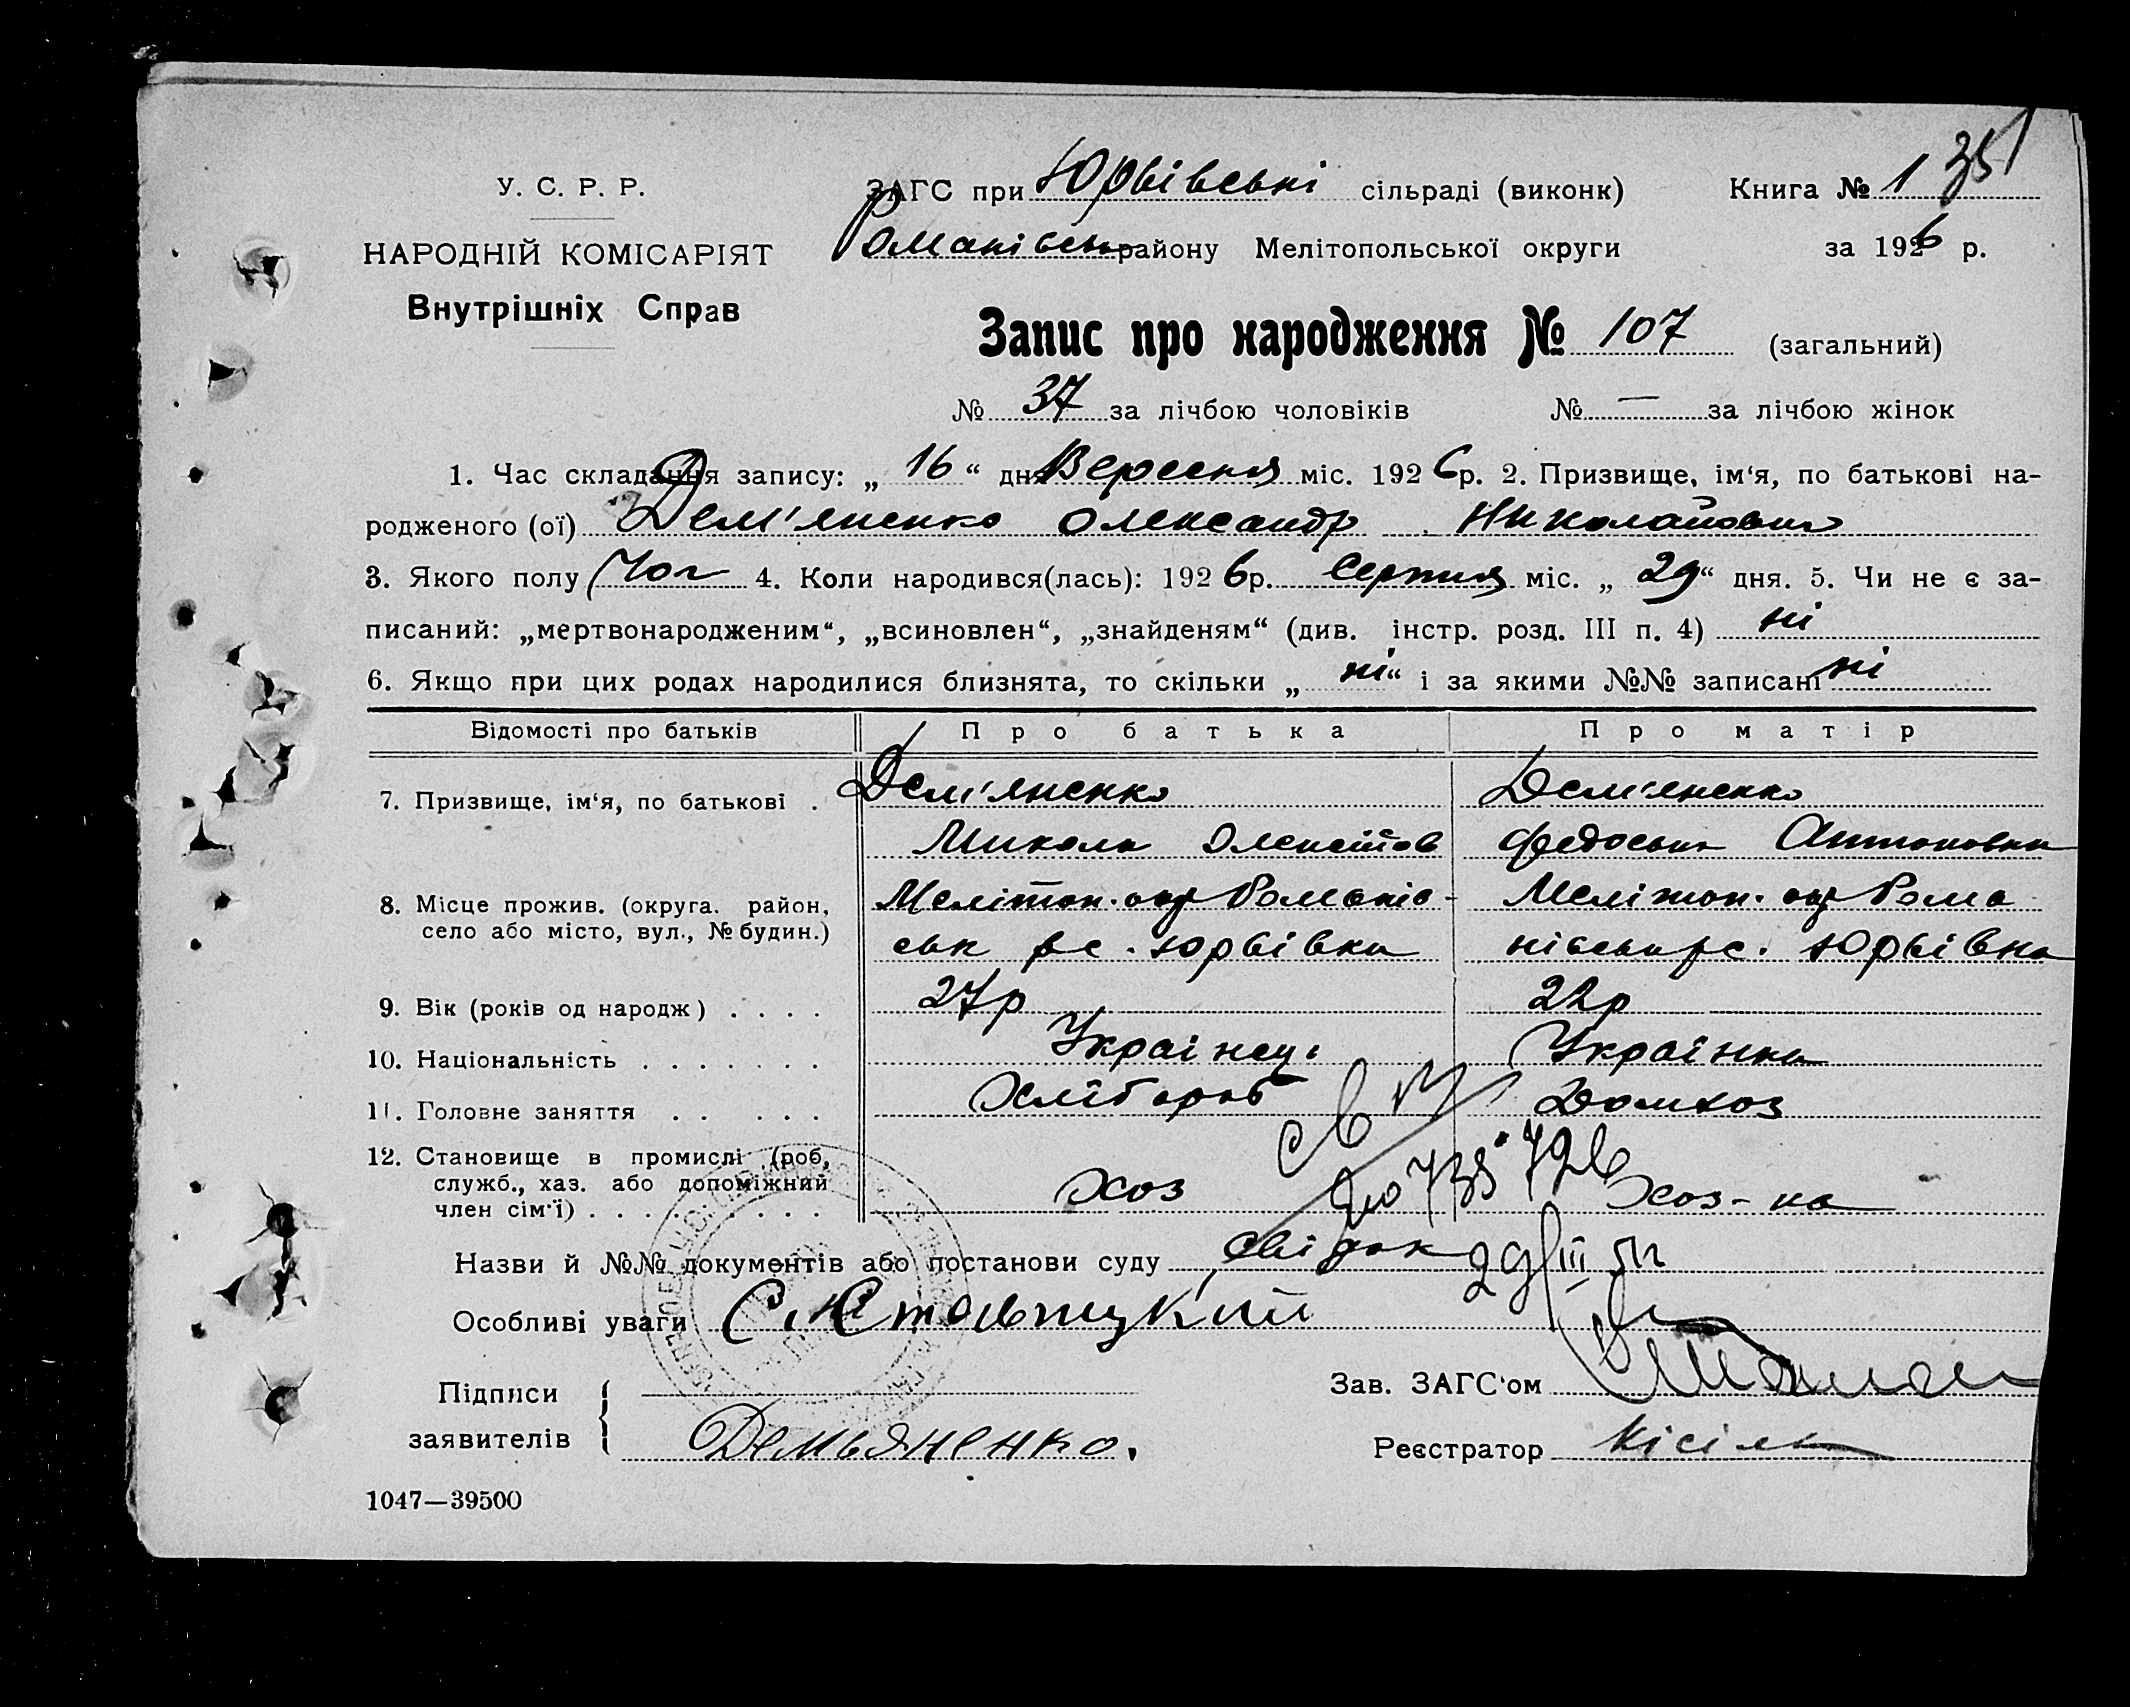 351
У. С. Р. Р.
ЗАГС при Юрьівські сільраді (виконк) Книга № 1
НАРОДНІЙ КОМІСАРІЯТ
Романівськ району Мелітопольської округи за 1926 р.
Внутрішніх Справ
Запис про народження № 107 (загальний)
№ 37 за лічбою чоловіків № — за лічбою жінок
1. Час складання запису: „ 16 “ дня Вересня міс. 1926 р. 2. Призвище, ім‘я, по батькові на-
родженого (ої) Дем'яненко Олександр Николайович
3. Якого полу Чол 4. Коли народився(лась): 1926 р. Серпня міс. „ 29 “ дня. 5. Чи не є за-
писаний: „мертвонародженим“, „всиновлен“, „знайденям“ (див. інстр. розд. III п. 4) ні
6. Якщо при цих родах народилися близнята, то скільки „ ні “ і за якими №№ записані ні
Відомості про батьків Про батька Про матір
7. Призвище, ім‘я, по батькові . Дем'яненко Дем'яненко
Микола Олексійов Федоська Антоновна
8. Місце прожив. (округа. район, Мелітоп. окр Романів- Мелітоп. окр Рома
село або місто, вул., № будин.) ськ р с. Юрьівка нівськ р с. Юрьівка
9. Вік (років од народж) . . . . 27р 22р
10. Національність . . . . . . . Українець Українка
11. Головне заняття . . . . . Хлібороб Домхоз
12. Становище в промислі (роб,
служб., хаз. або допоміжний
член сім‘ї) . . . . . . . . . Хоз Хоз-ка
Назви й №№ документів або постанови суду Свідок 29/III
Особливі уваги
Підписи Зав. ЗАГС‘ом
заявителів Демьяненко. Реєстратор Кісіль
1047—39500